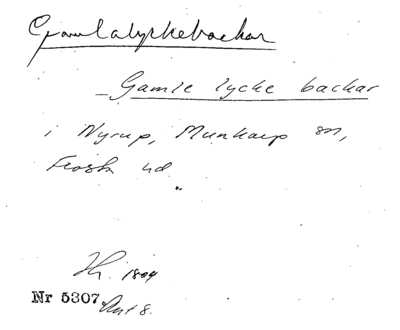 Gamlalyckebackar
Gamle lycke backar
i Nyrup, Munkarp sn,
Frosta hd
1804
Nr 5307 Akt 8.